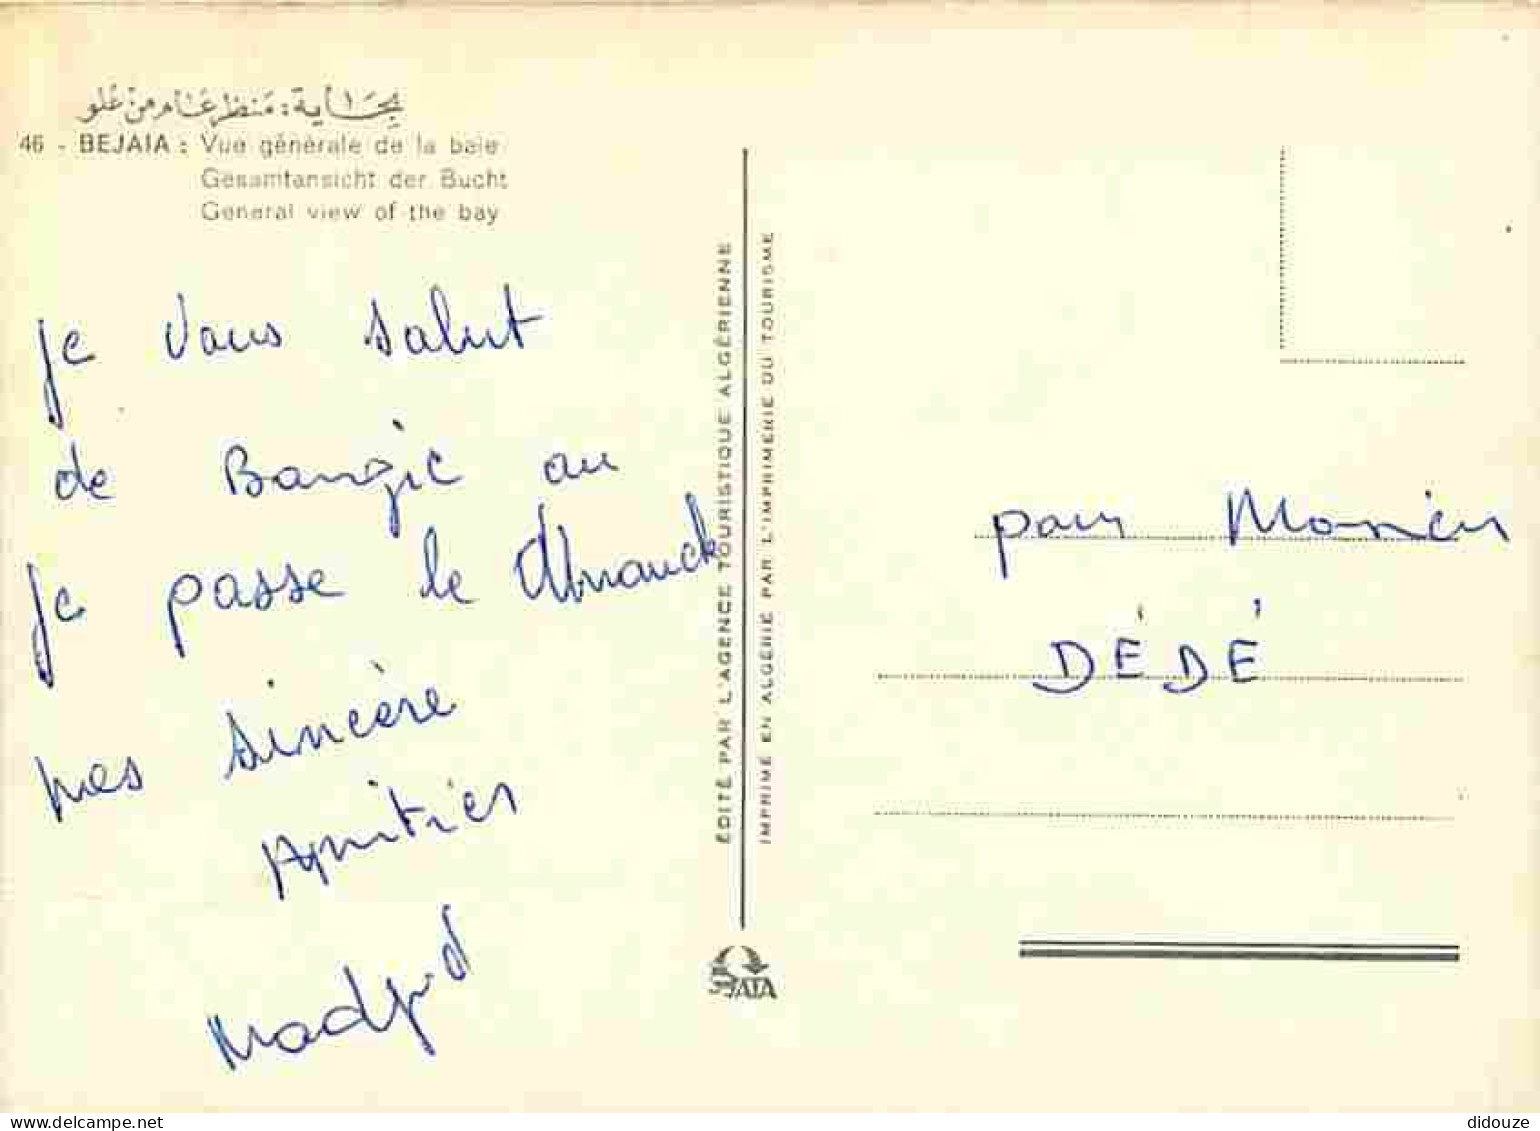 بِجَايَة : مَنظر عَام من عُلو
46 - BEJAIA : Vue générale de la baie
Gesamtansicht der Bucht
General view of the bay
je vous salut
de Bougie au
je passe le
mes sincère
Amitier
Madjid
ÉDITÉ PAR L'AGENCE TOURISTIQUE ALGÉRIENNE
IMPRIMÉ EN ALGÉRIE PAR L'IMPRIMERIE DU TOURISME
ATA
pour Monsieur
DÉDÉ
www.delcampe.net
didouze